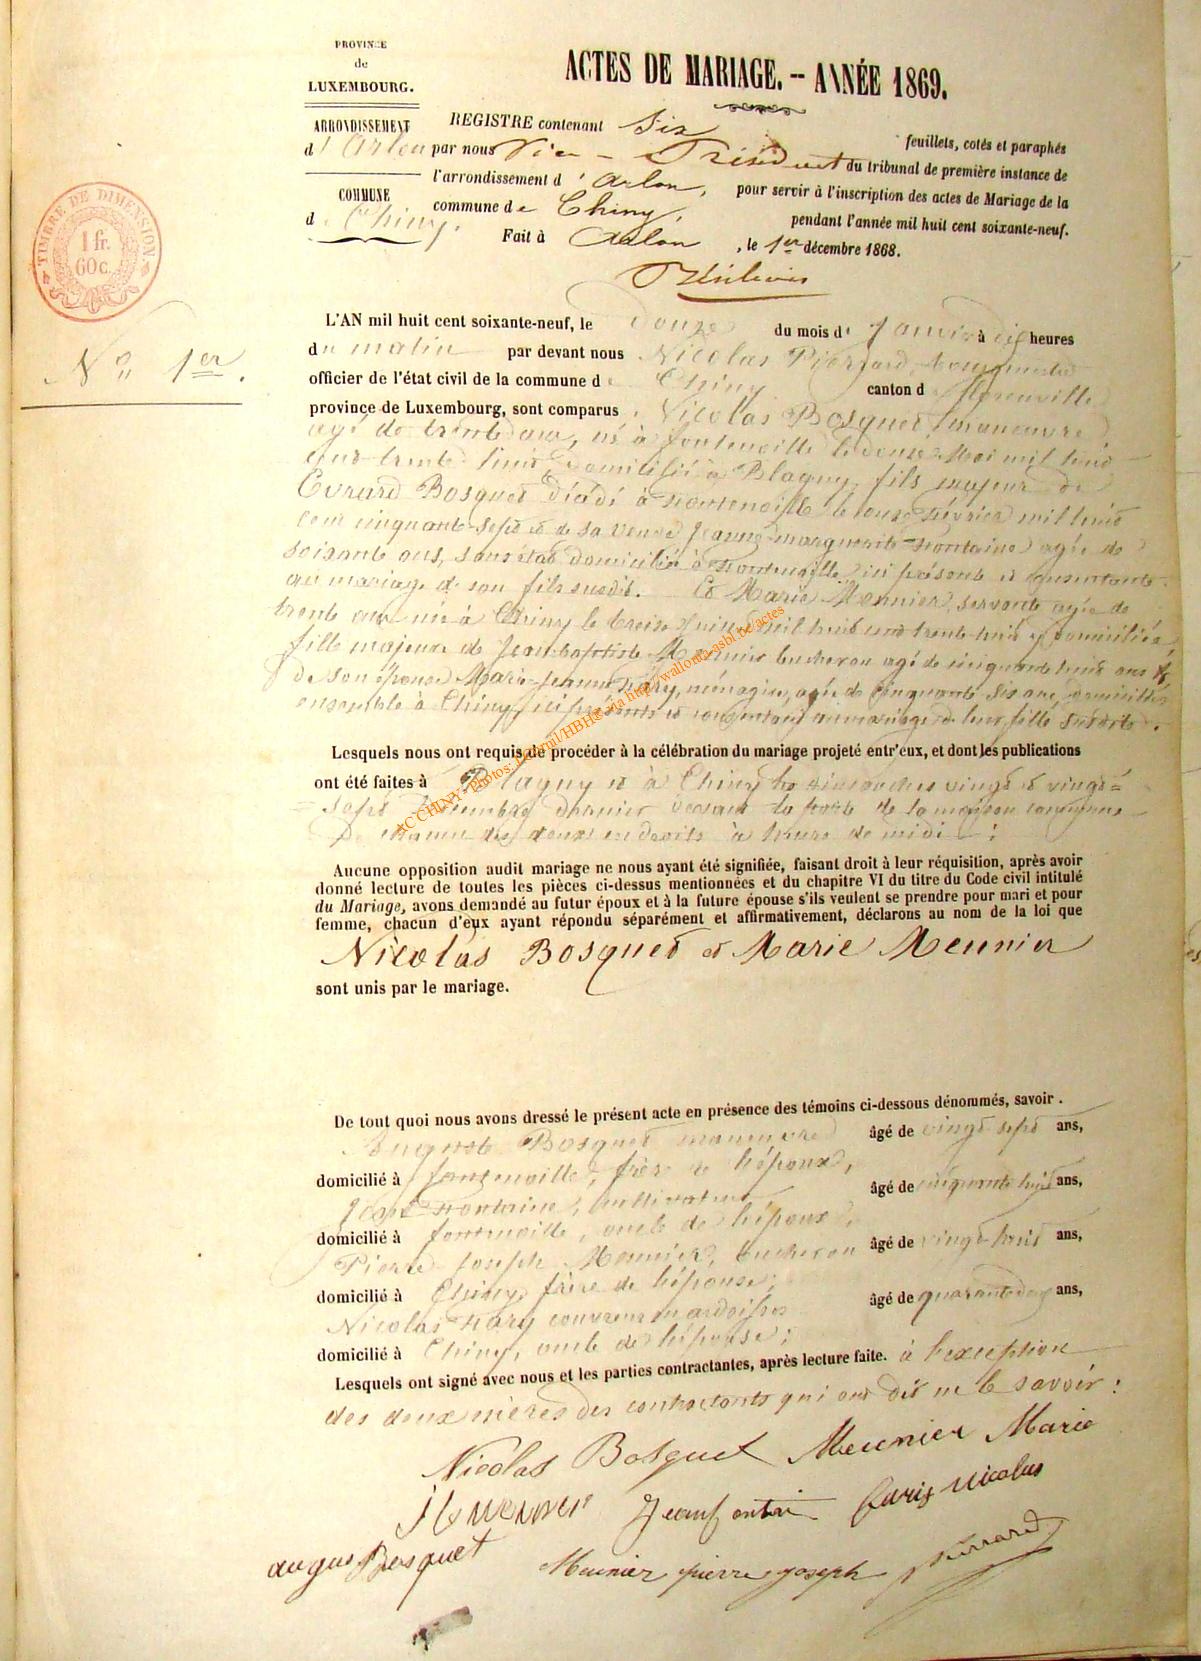 PROVINCE
de
LUXEMBOURG.
ARRONDISSEMENT
d'Arlon
COMMUNE
de Chiny.
TIMBRE DE DIMENSION
1 fr.
60 c.
ACTES DE MARIAGE. -- ANNÉE 1869.
REGISTRE contenant Six feuillets, cotés et paraphés
par nous Vice-Président du tribunal de première instance de
l'arrondissement d'Arlon, pour servir à l'inscription des actes de Mariage de la
commune de Chiny, pendant l'année mil huit cent soixante-neuf.
Fait à Arlon, le 1er décembre 1868.
No 1er.
L'AN mil huit cent soixante-neuf, le douze du mois de Janvier à dix heures
du matin par devant nous Nicolas Pierrard, bourgmestre
officier de l'état civil de la commune de Chiny canton de Florenville
province de Luxembourg, sont comparus, Nicolas Bosquet, manœuvre
agé de trente ans, né à fontenoille le douze Mai mil huit
cent trente huit, domicilié à Blagny, fils majeur de
Evrard Bosquet décédé à Fontenoille le onze Février mil huit
cent cinquante-sept et de sa veuve Jeanne-marguerite Fontaine agée de
soixante ans, sans état domiciliée à Fontenoille, ici présente et consentante
au mariage de son fils susdit. Et Marie Meunier, servante agée de
trente ans née à Chiny le treize Juin mil huit cent trente huit y domiciliée,
fille majeure de Jean baptiste Meunier bucheron agé de cinquante huit ans &
de son épouse Marie-Jeanne Fary, ménagère, agée de cinquante six ans, domiciliés
ensemble à Chiny, ici présents et consentant au mariage de leur fille susdite.
AC CHINY - Photos: via http://wallonia-asbl.be/actes
Lesquels nous ont requis de procéder à la célébration du mariage projeté entr'eux, et dont les publications
ont été faites à Blagny et à Chiny les dimanches vingt & vingt=
=sept Décembre dernier devant la porte de la maison commune
de chacun des deux endroits à heure de midi :
Aucune opposition audit mariage ne nous ayant été signifiée, faisant droit à leur réquisition, après avoir
donné lecture de toutes les pièces ci-dessus mentionnées et du chapitre VI du titre du Code civil intitulé
du Mariage, avons demandé au futur époux et à la future épouse s'ils veulent se prendre pour mari et pour
femme, chacun d'eux ayant répondu séparément et affirmativement, déclarons au nom de la loi que
Nicolas Bosquet et Marie Meunier
sont unis par le mariage.
De tout quoi nous avons dressé le présent acte en présence des témoins ci-dessous dénommés, savoir.
August Bosquet manœuvre âgé de vingt sept ans,
domicilié à fontenoille, frère de l'époux,
Jean Fontaine, cultivateur, âgé de cinquante huit ans,
domicilié à fontenoille, oncle de l'époux,
Pierre Joseph Meunier, bucheron âgé de vingt-huit ans,
domicilié à Chiny, frère de l'épouse;
Nicolas Fary couvreur en ardoises âgé de quarante deux ans,
domicilié à Chiny, oncle de l'épouse;
Lesquels ont signé avec nous et les parties contractantes, après lecture faite. à l'exception
des deux mères des contractants qui ont dit ne le savoir:
Nicolas Bosquet Meunier Marie
Nicolas
Bosquet Meunier pierre joseph Pierrard